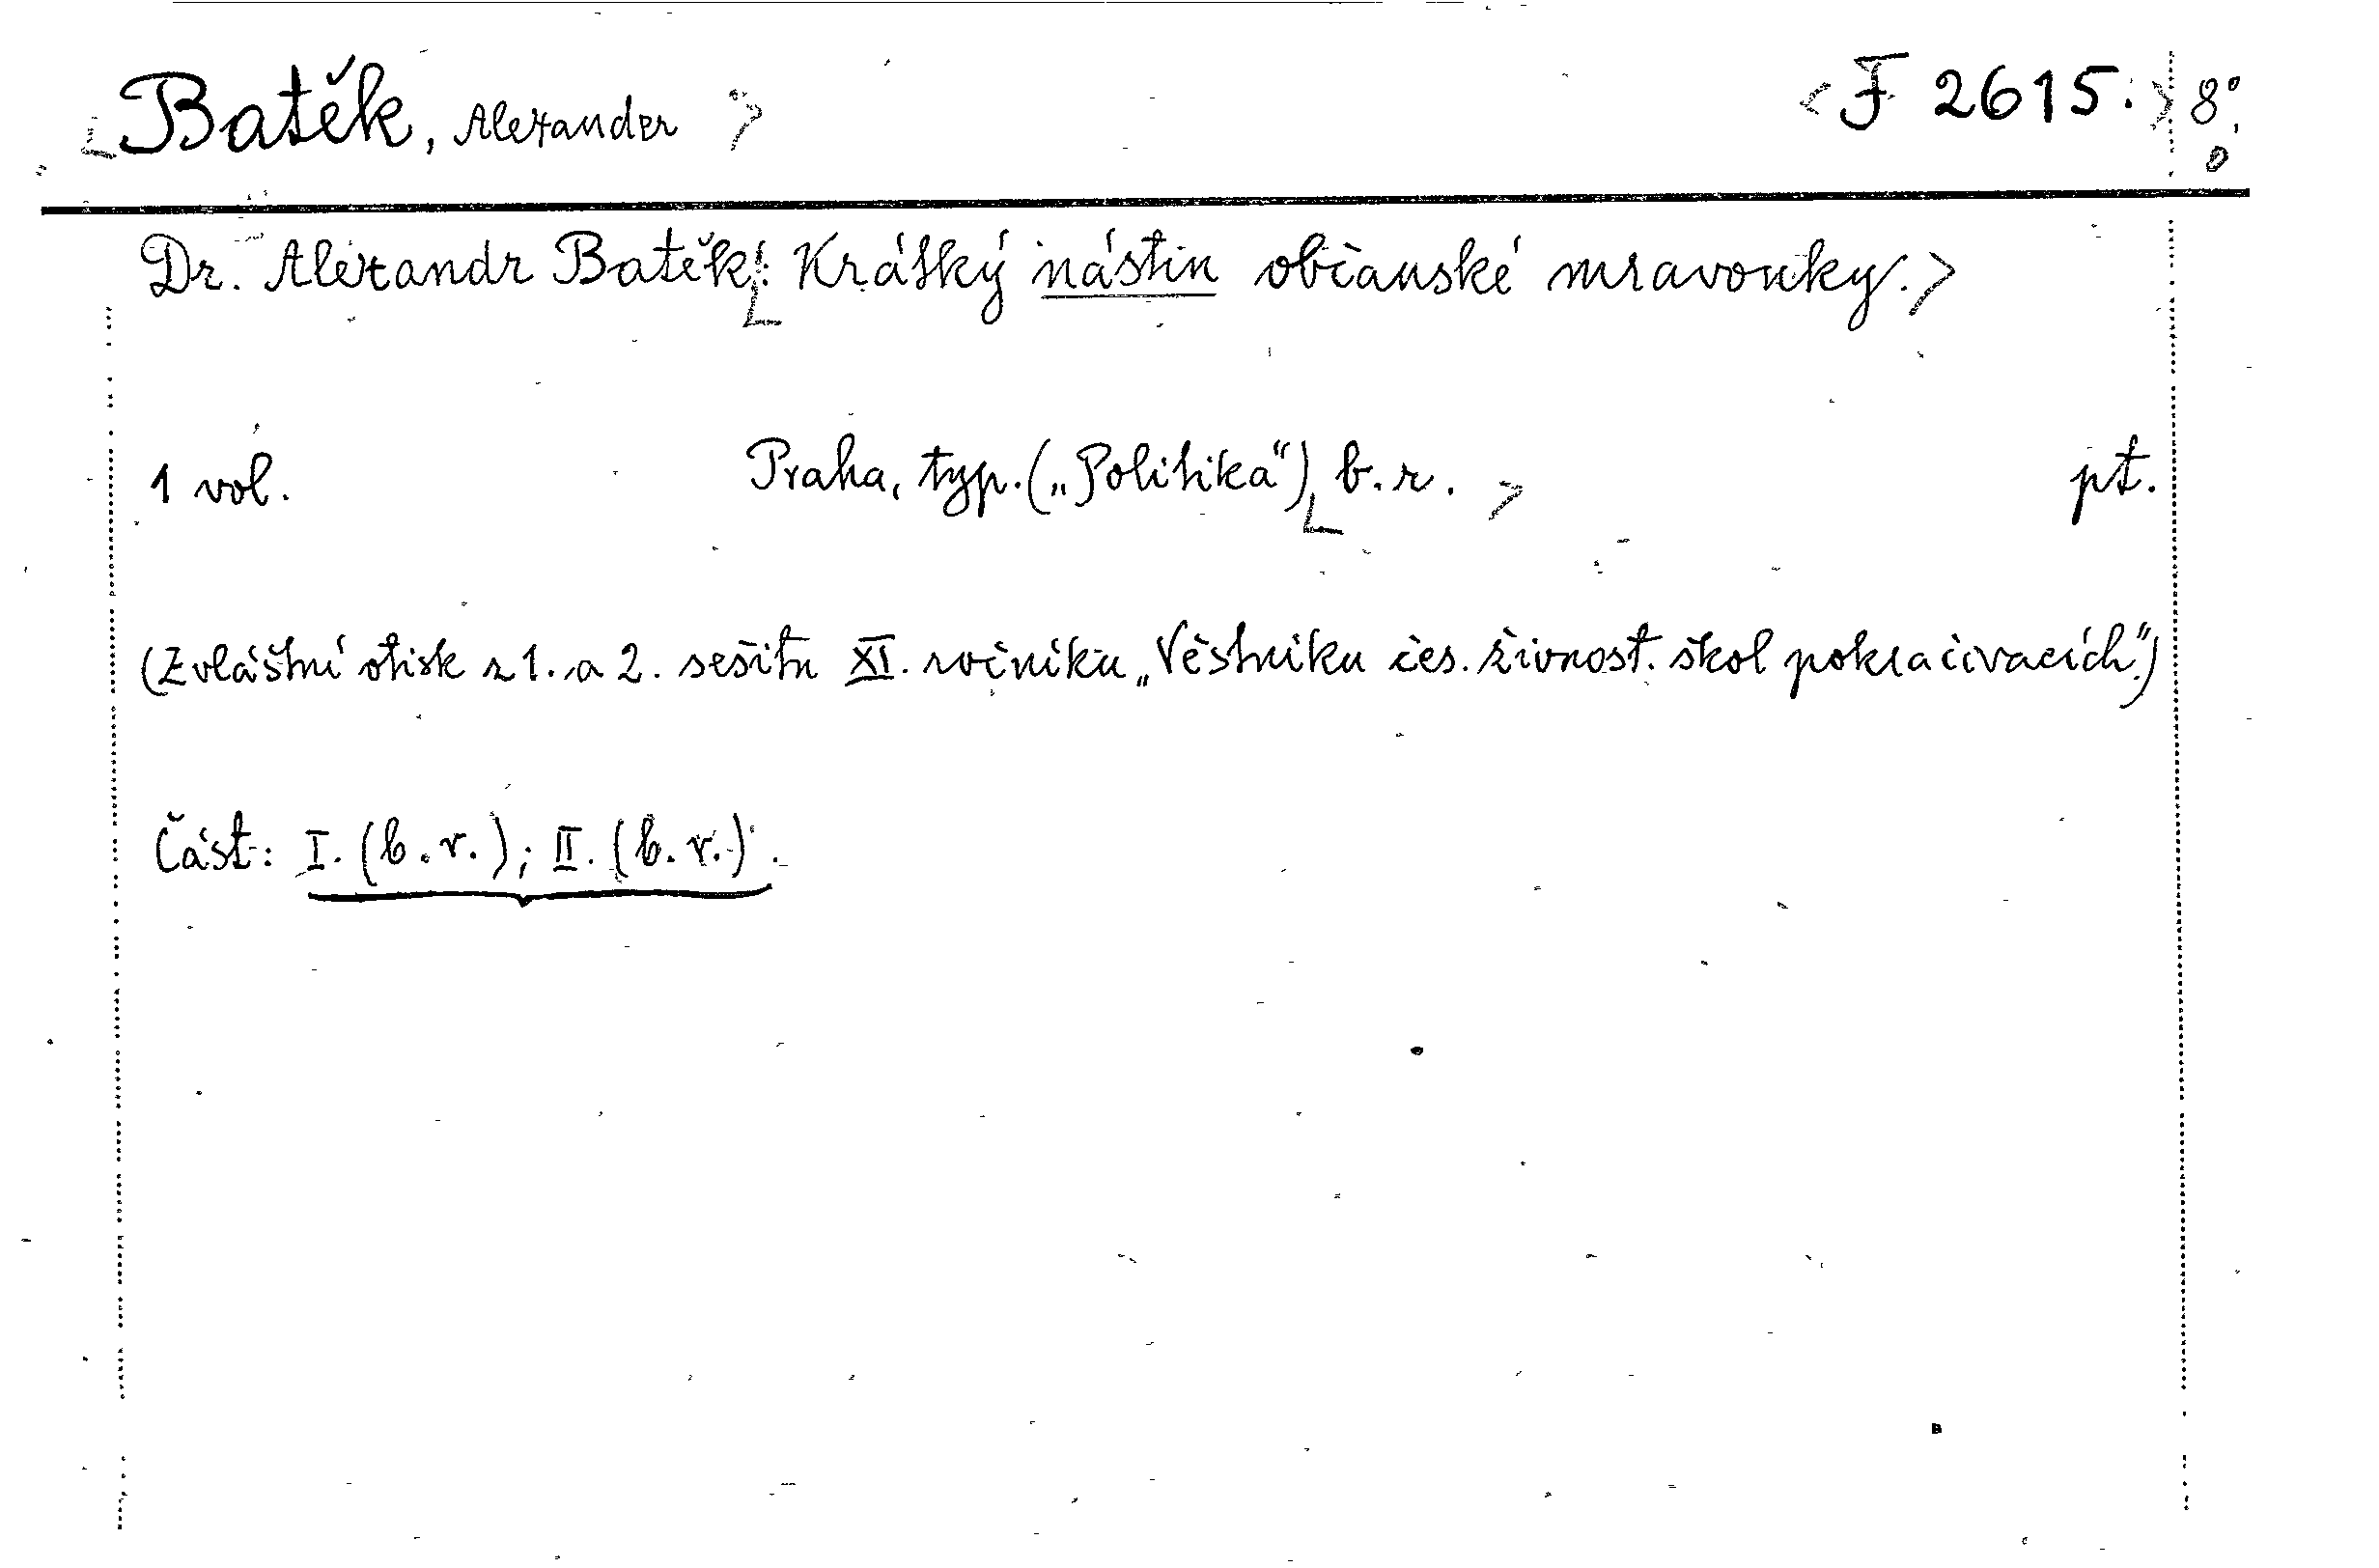 Batěk, Alexander F 2615. 8°
Dr. Alexandr Batěk: Krátký nástin občanské mravouky.
1 vol. Praha, typ. („Politika“) b.r. pt.
(Zvláštní otisk z 1. a 2. sešitu XI. ročníku „Věstníku čes. živnost. škol pokračovacích“.)
Část: I. (b.r.); II. (b.r.).